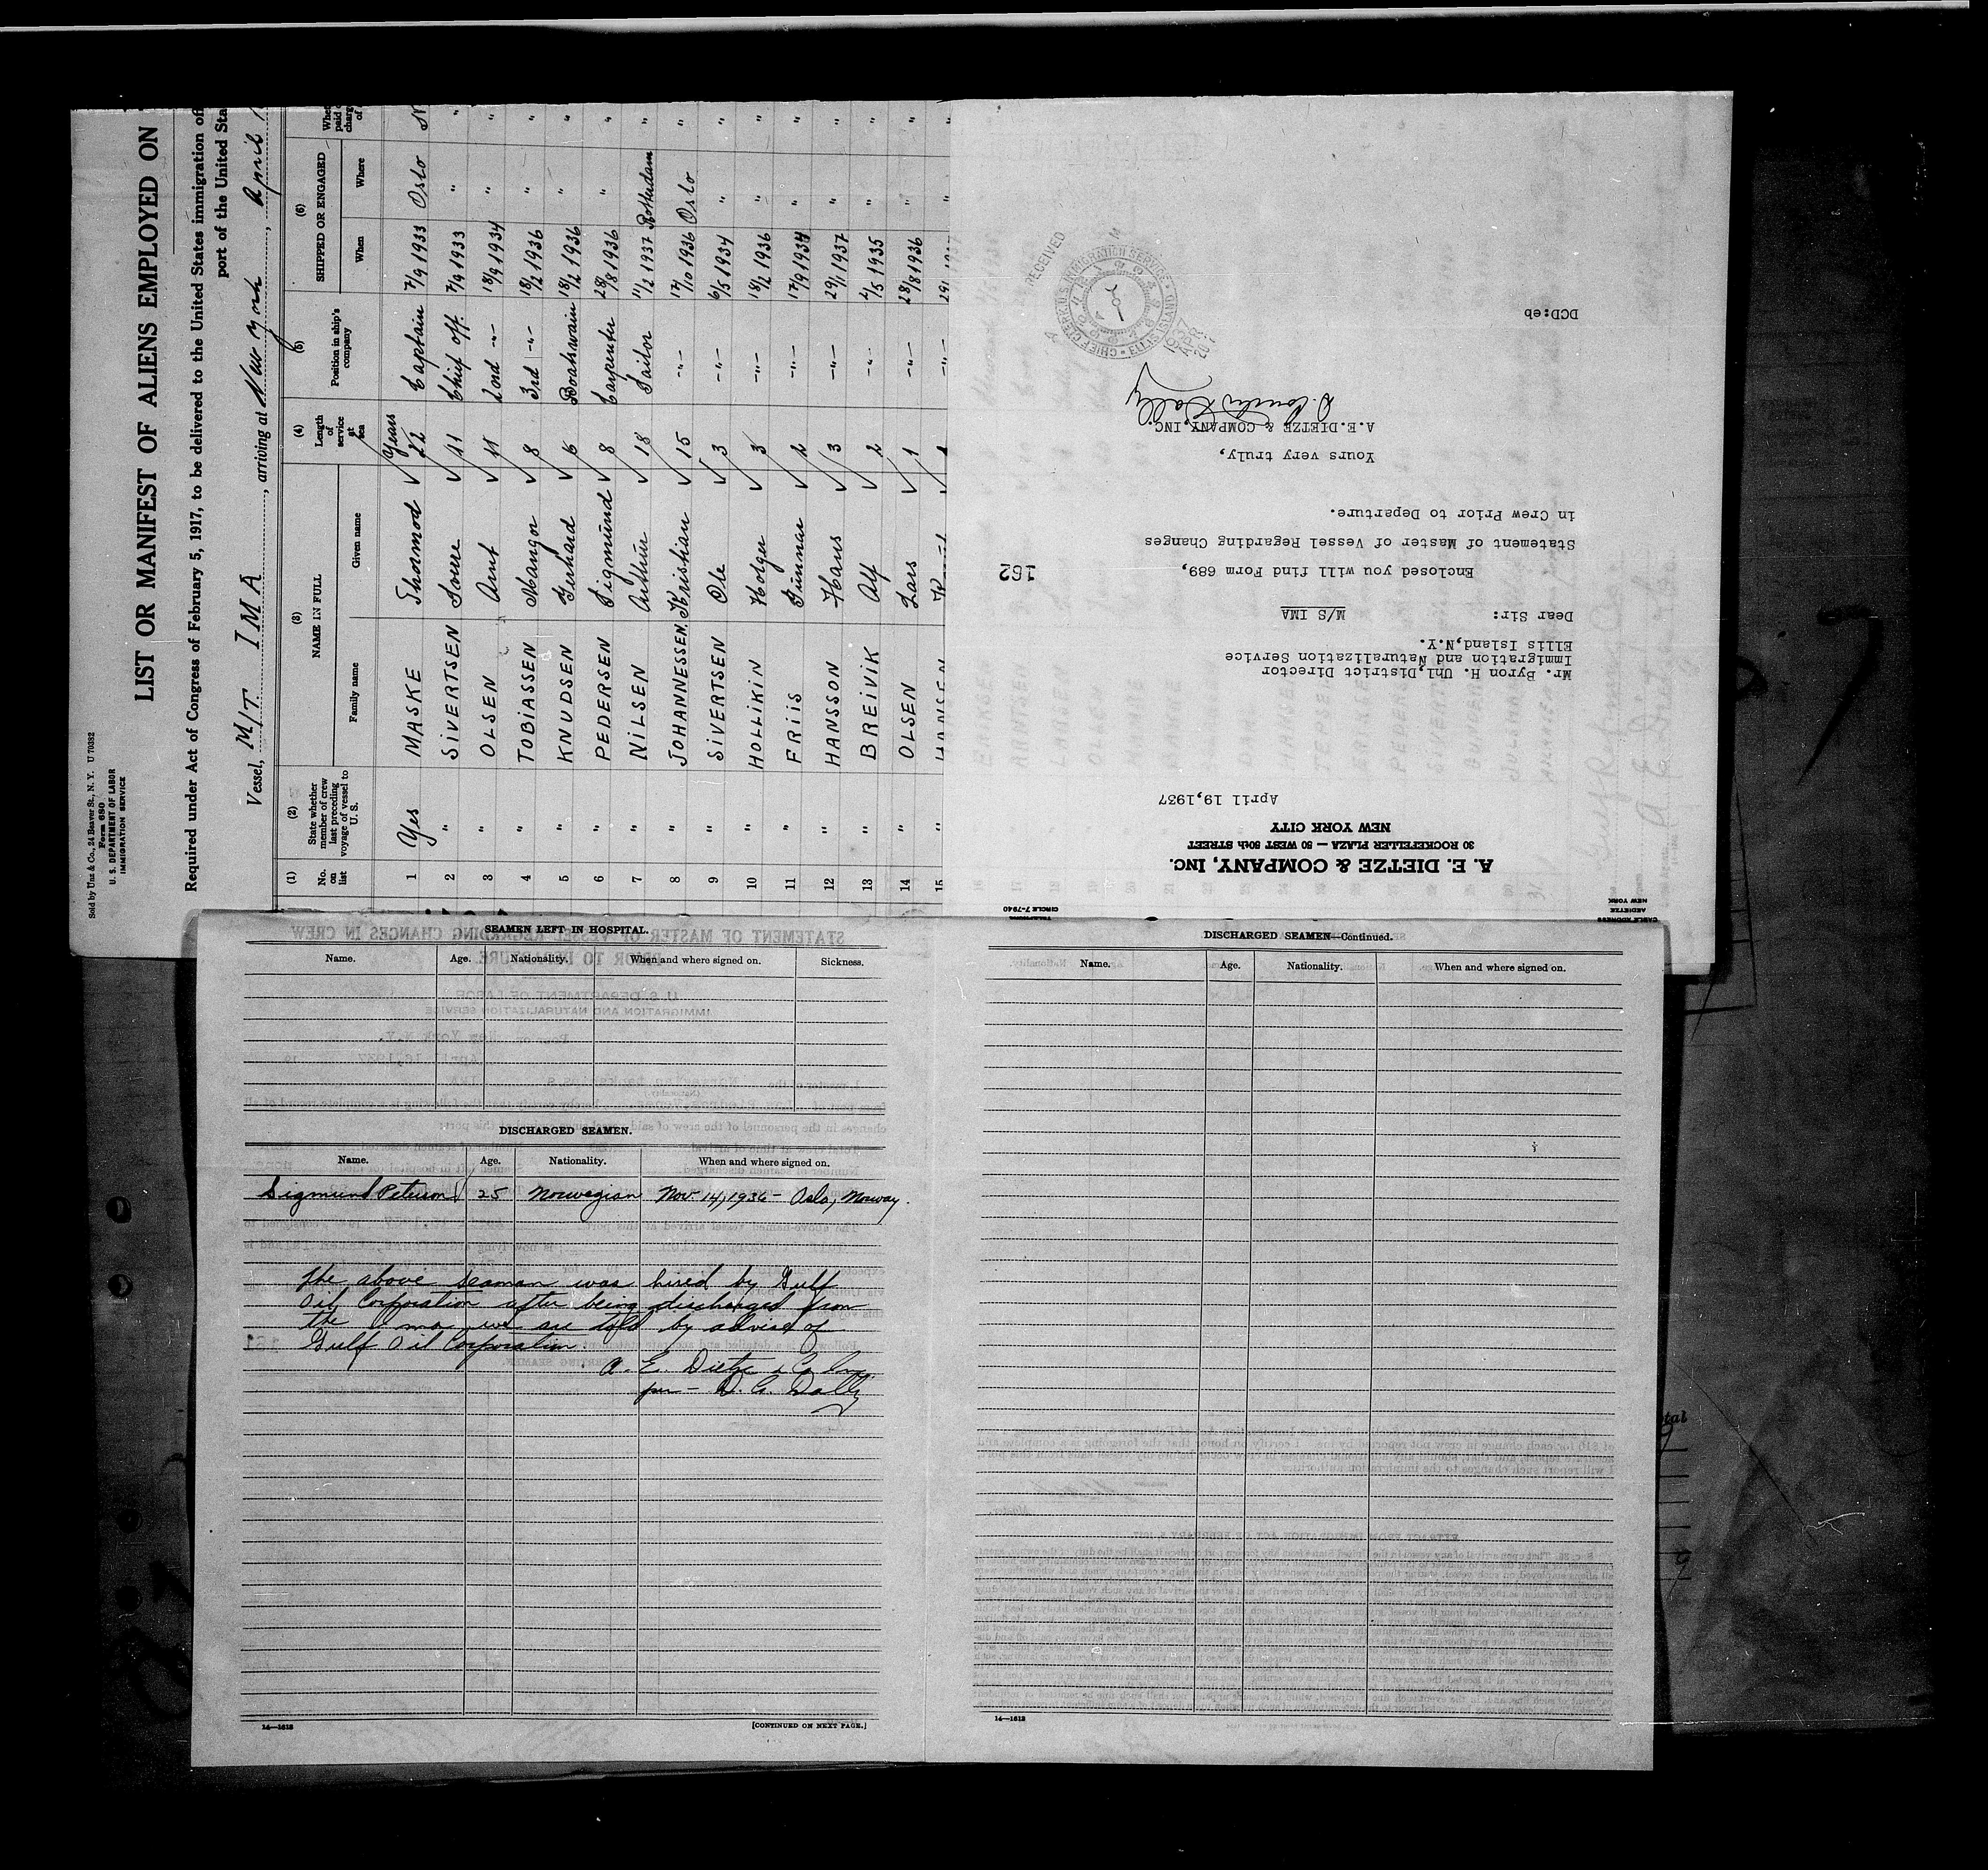 Sold by Unz & Co., 24 Beaver St., N. Y. U 70382
Form 680
U. S. DEPARTMENT OF LABOR
IMMIGRATION SERVICE
LIST OR MANIFEST OF ALIENS EMPLOYED ON
Required under Act of Congress of February 5, 1917, to be delivered to the United States immigration of
port of the United Sta
Vessel, M/T. IMA, arriving at New York, April 1
(1) (2) (3) (4) (5) (6)
No. on list
State whether member of crew last preceding voyage of vessel to U. S.
NAME IN FULL
Family name Given name
Length of service at sea
Position in ship's company
SHIPPED OR ENGAGED
When Where
1 Yes MASKE Thormod Years 22 Captain 7/9 1933 Oslo
2 " SIVERTSEN Tore 11 Chief off. 7/9 1933 " "
3 " OLSEN Arnt 11 2nd -"- 18/9 1934 " "
4 " TOBIASSEN Mangor 8 3rd -"- 18/2 1936 " "
5 " KNUDSEN Gerhard 6 Boatswain 18/2 1936 " "
6 " PEDERSEN Sigmund 8 Carpenter 28/8 1936 " "
7 " NILSEN Arthur 18 Sailor 11/2 1937 Rotterdam "
8 " JOHANNESSEN, Kristian 15 -"- 17/10 1936 Oslo "
9 " SIVERTSEN Ole 3 -"- 6/5 1934 " "
10 " HOLLIKIN Holger 3 -"- 18/2 1936 " "
11 " FRIIS Gunnar 2 -"- 17/9 1934 " "
12 " HANSSON Hans 3 -"- 29/1 1937 " "
13 " BREIVIK Alf 2 -"- 4/5 1935 " "
14 " OLSEN Lars 1 -"- 28/8 1936 " "
15 " HANSEN
CABLE ADDRESS
AEDIETZE
NEW YORK
TELEPHONE
CIRCLE 7-7940
A. E. DIETZE & COMPANY, INC.
30 ROCKEFELLER PLAZA — 50 WEST 50th STREET
NEW YORK CITY
April 19,1937
Mr. Byron H. Uhl,District Director
Immigration and Naturalization Service
Ellis Island,N.Y.
Dear Sir: M/S IMA
Enclosed you will find Form 689,
162
Statement of Master of Vessel Regarding Changes
in Crew Prior to Departure.
Yours very truly,
A.E.DIETZE & COMPANY,INC.
DCD:eb
RECEIVED
CHIEF CLERK U.S. IMMIGRATION SERVICE
ELLIS ISLAND
1937 APR 20
SEAMEN LEFT IN HOSPITAL.
Name. Age. Nationality. When and where signed on. Sickness.
DISCHARGED SEAMEN.
Name. Age. Nationality. When and where signed on.
Sigmund Peterson 25 Norwegian Nov 14, 1936 - Oslo, Norway.
The above seaman was hired by Gulf
Oil Corporation after being discharged from
the Ima we are told by advise of
Gulf Oil Corporation
A. E. Dietze & Co. Inc.
per - D. C. Dally
14—1618
[CONTINUED ON NEXT PAGE.]
DISCHARGED SEAMEN—Continued.
Name. Age. Nationality. When and where signed on.
14—1618